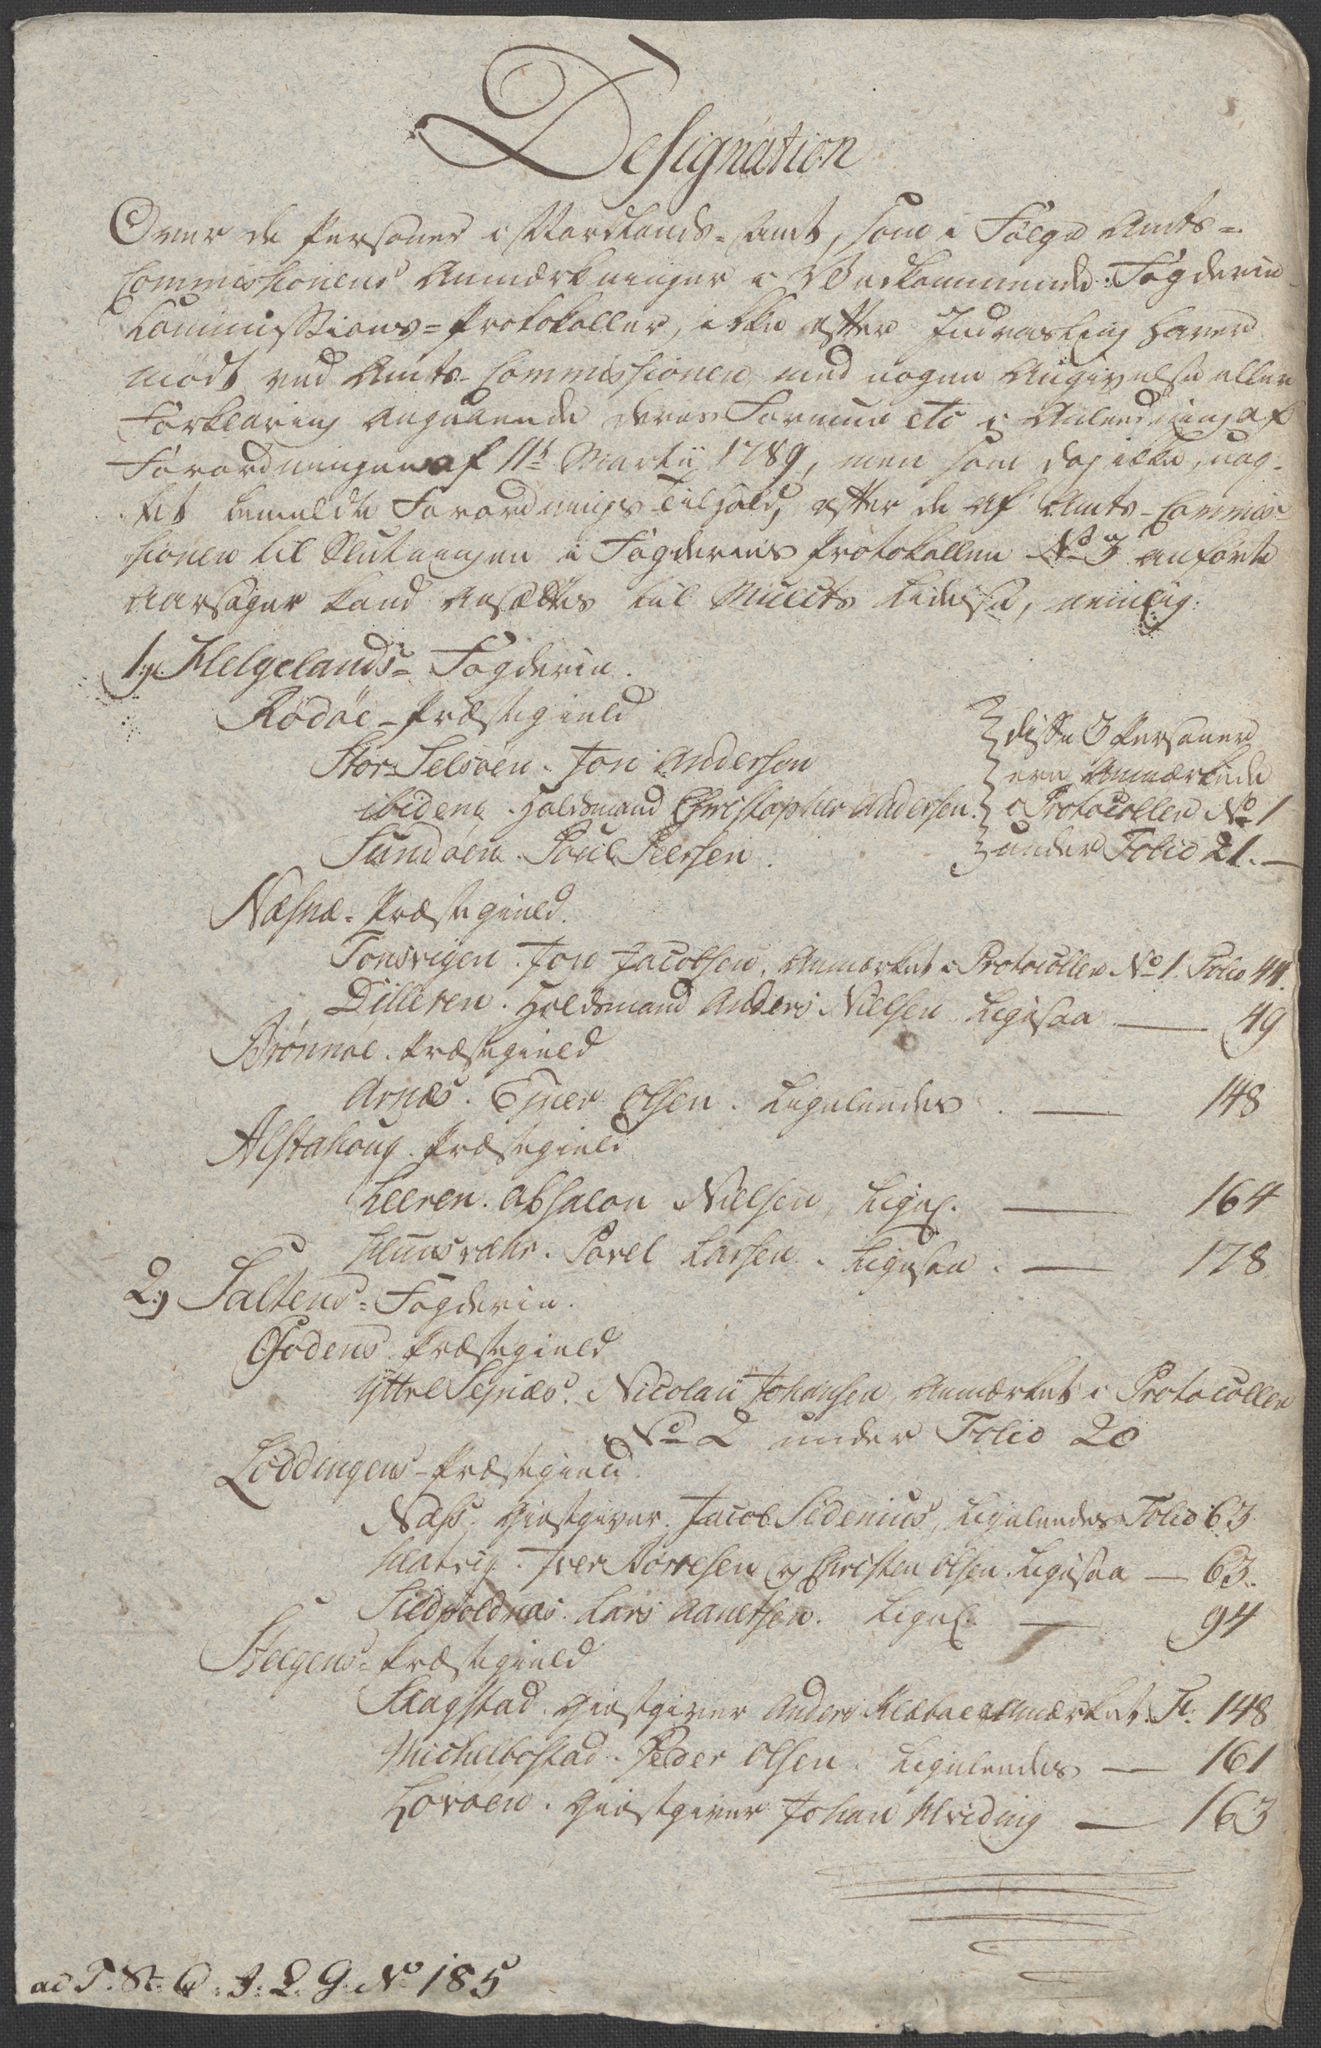 Designation
Over de Personer i Nordlands-Amt, som i Følge Amts-
Commissionens Anmærkninger i Vedkommende Fogderie
Commissions-Protokoller, ikke efter Indvarsling haver
mødt ved Amts-Commissionen med nogen Angivelse eller
Forklaring angaaende deres Formue etc i Anledning af
Forordningen af 11te Martii 1789, men som dog ikke, uag-
tet bemeldte Forordnings Tilhold, efter de af Amts-Commis-
sionen til Slutningen i Fogderiets Protokollen No 3 anførte
Aarsager kand ansættes til Mulcts Lidelse, nemlig:
1) Helgelands-Fogderie.
Rødøe-Præstegield
Stor-Selsøen. Jon Andersen
ibidem. Huusmand Christopher Andersen.
Sundøen. Poul Peersen.
disse 3 Personer
ere Anmærkede
i Protocollen No 1
under Folio 21.
Næsne-Præstegield.
Tonsvigen. Jon Jacobsen. Anmærket i Protocollen No 1. Folio 44.
Dilleren. Huusmand Anders Nielsen Ligesaa — 49
Brønnøe. Præstegield
Arnæs. Ejner Olsen. Ligeledes. — 148
Alstahoug. Præstegield
Leeren. Absalon Nielsen, Ligel. — 164
Huusvær. Povel Larsen. Ligesaa. — 178.
2) Saltens-Fogderie.
Ofodens Præstegield
Yttre Sejnæs. Nicolai Johansen, Anmærket i Protocollen
No 2 under Folio 20
Løddingens-Præstegield.
Næss. Giestgiver Jacob Sidenius, Ligeledes Folio 63.
Iver Torresen og Christen Olsen. Ligesaa — 63.
Sildpoldnæs. Lars Ligel. — 94
Stegens-Præstegield
Skagstad. Giestgiver Anders Klæboe Anmærket. Fo. 148
Michelbostad. Peder Olsen. Ligeledes — 161
Løvøen. Giestgiver Johan Hveding — 163
ad P. St. O. J: L. G. No 185